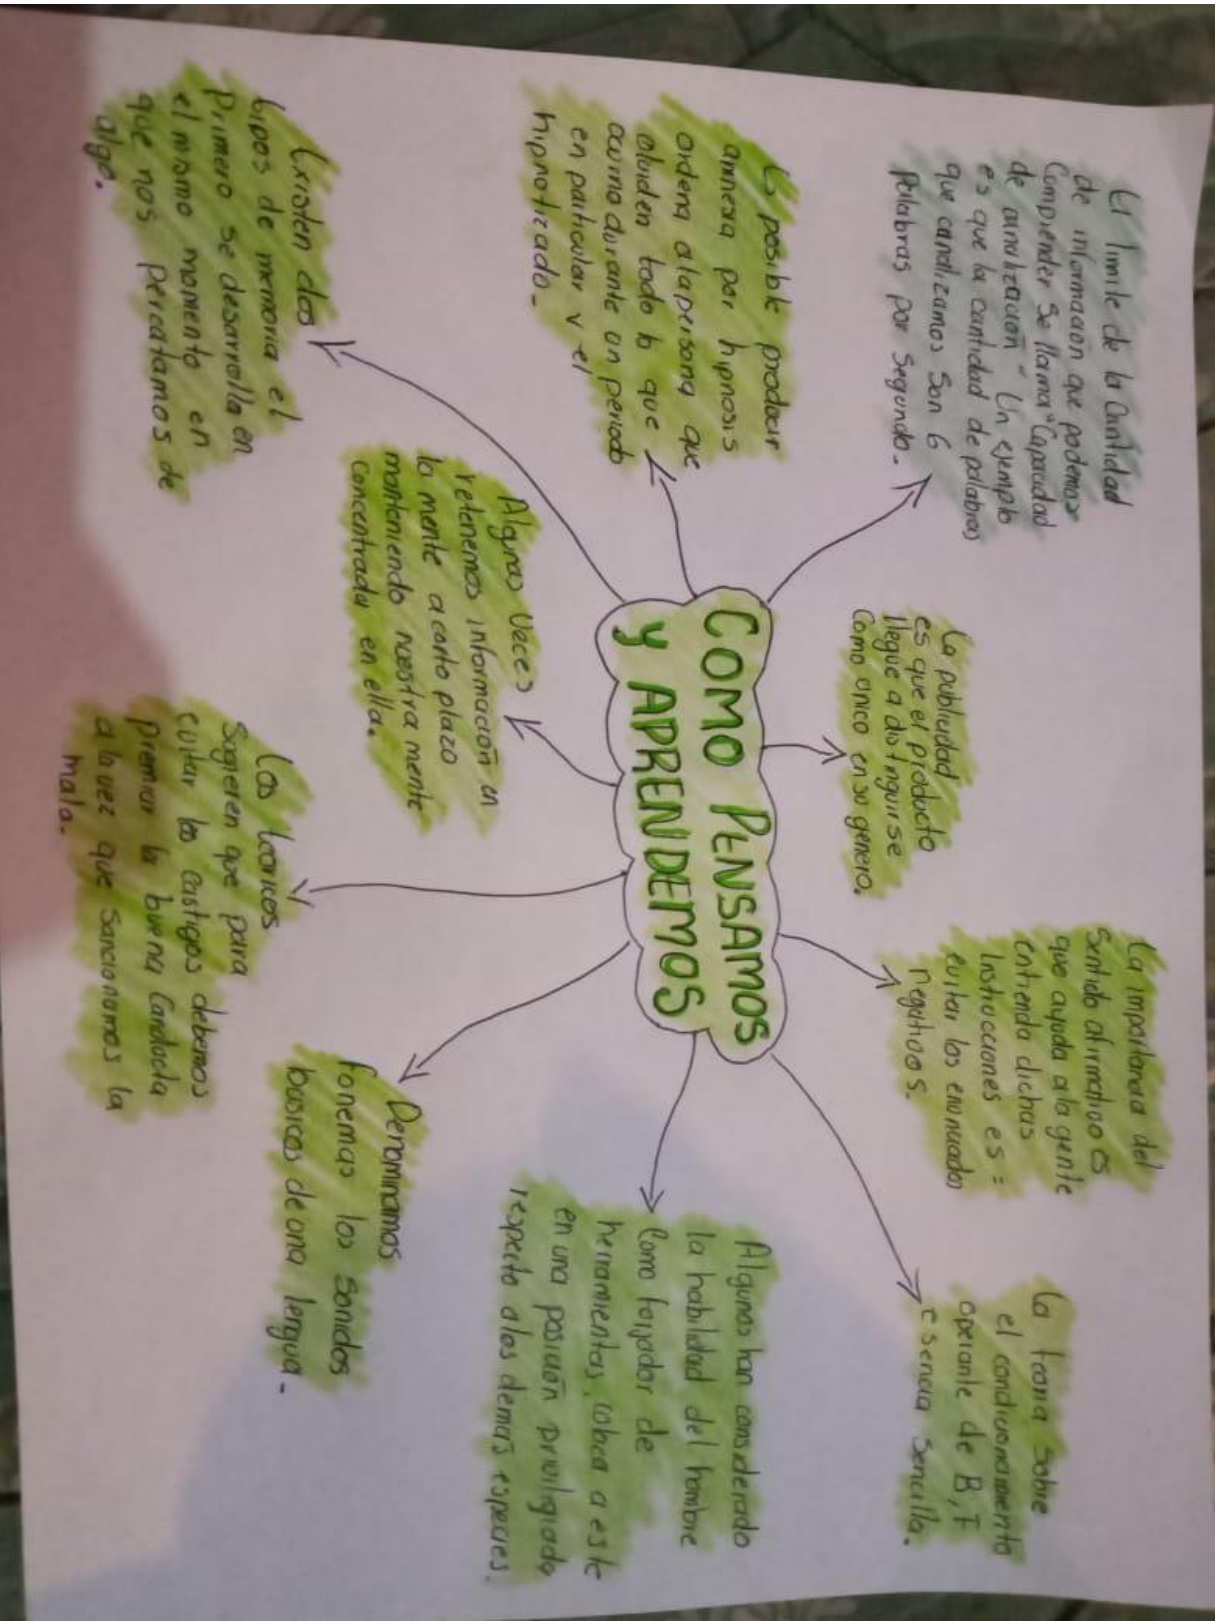 COMO PENSAMOS
y APRENDEMOS
El limite de la Cantidad
de información que podemos
Comprender Se llama "Capacidad
de canalización" Un ejemplo
es que la cantidad de palabras
que canalizamos Son 6
palabras por Segundo.
La publicidad
es que el producto
llegue a distinguirse
Como único en su genero.
La importancia del
Sentido afirmativo es
que ayuda a la gente
entienda dichas
Instrucciones es =
evitar los enunciados
negativos.
La teoria sobre
el condicionamiento
operante de B, F
esencia sencilla.
Es posible producir
amnesia por hipnosis
ordena a la persona que
olviden todo lo que
ocurrio durante un periodo
en particular y el
hipnotizado.
Algunos han considerado
la habilidad del hombre
Como forjador de
herramientas, coloca a este
en una posición
respecto a los demás especies.
Algunas veces
retenemos información en
la mente a corto plazo
manteniendo nuestra mente
Concentrada en ella.
Existen dos
tipos de memoria el
Primero se desarrolla en
el mismo momento en
que nos percatamos de
algo.
Los teoricos
Sugieren que para
evitar los castigos debemos
premiar la buena Conducta
a la vez que Sancionamos la
mala.
Denominamos
fonemas los Sonidos
basicos de una lengua.